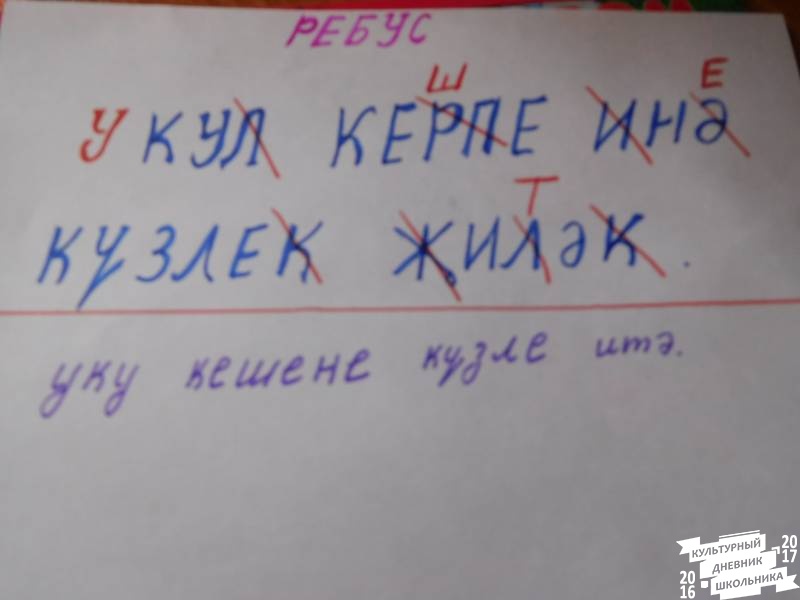 РЕБУС
Ш Е
УКУЛ КЕРПЕ ИНӘ
Т
КҮЗЛЕК ҖИЛӘК.
уку кешене күзле итә.
КУЛЬТУРНЫЙ
ДНЕВНИК
ШКОЛЬНИКА
2016
2017